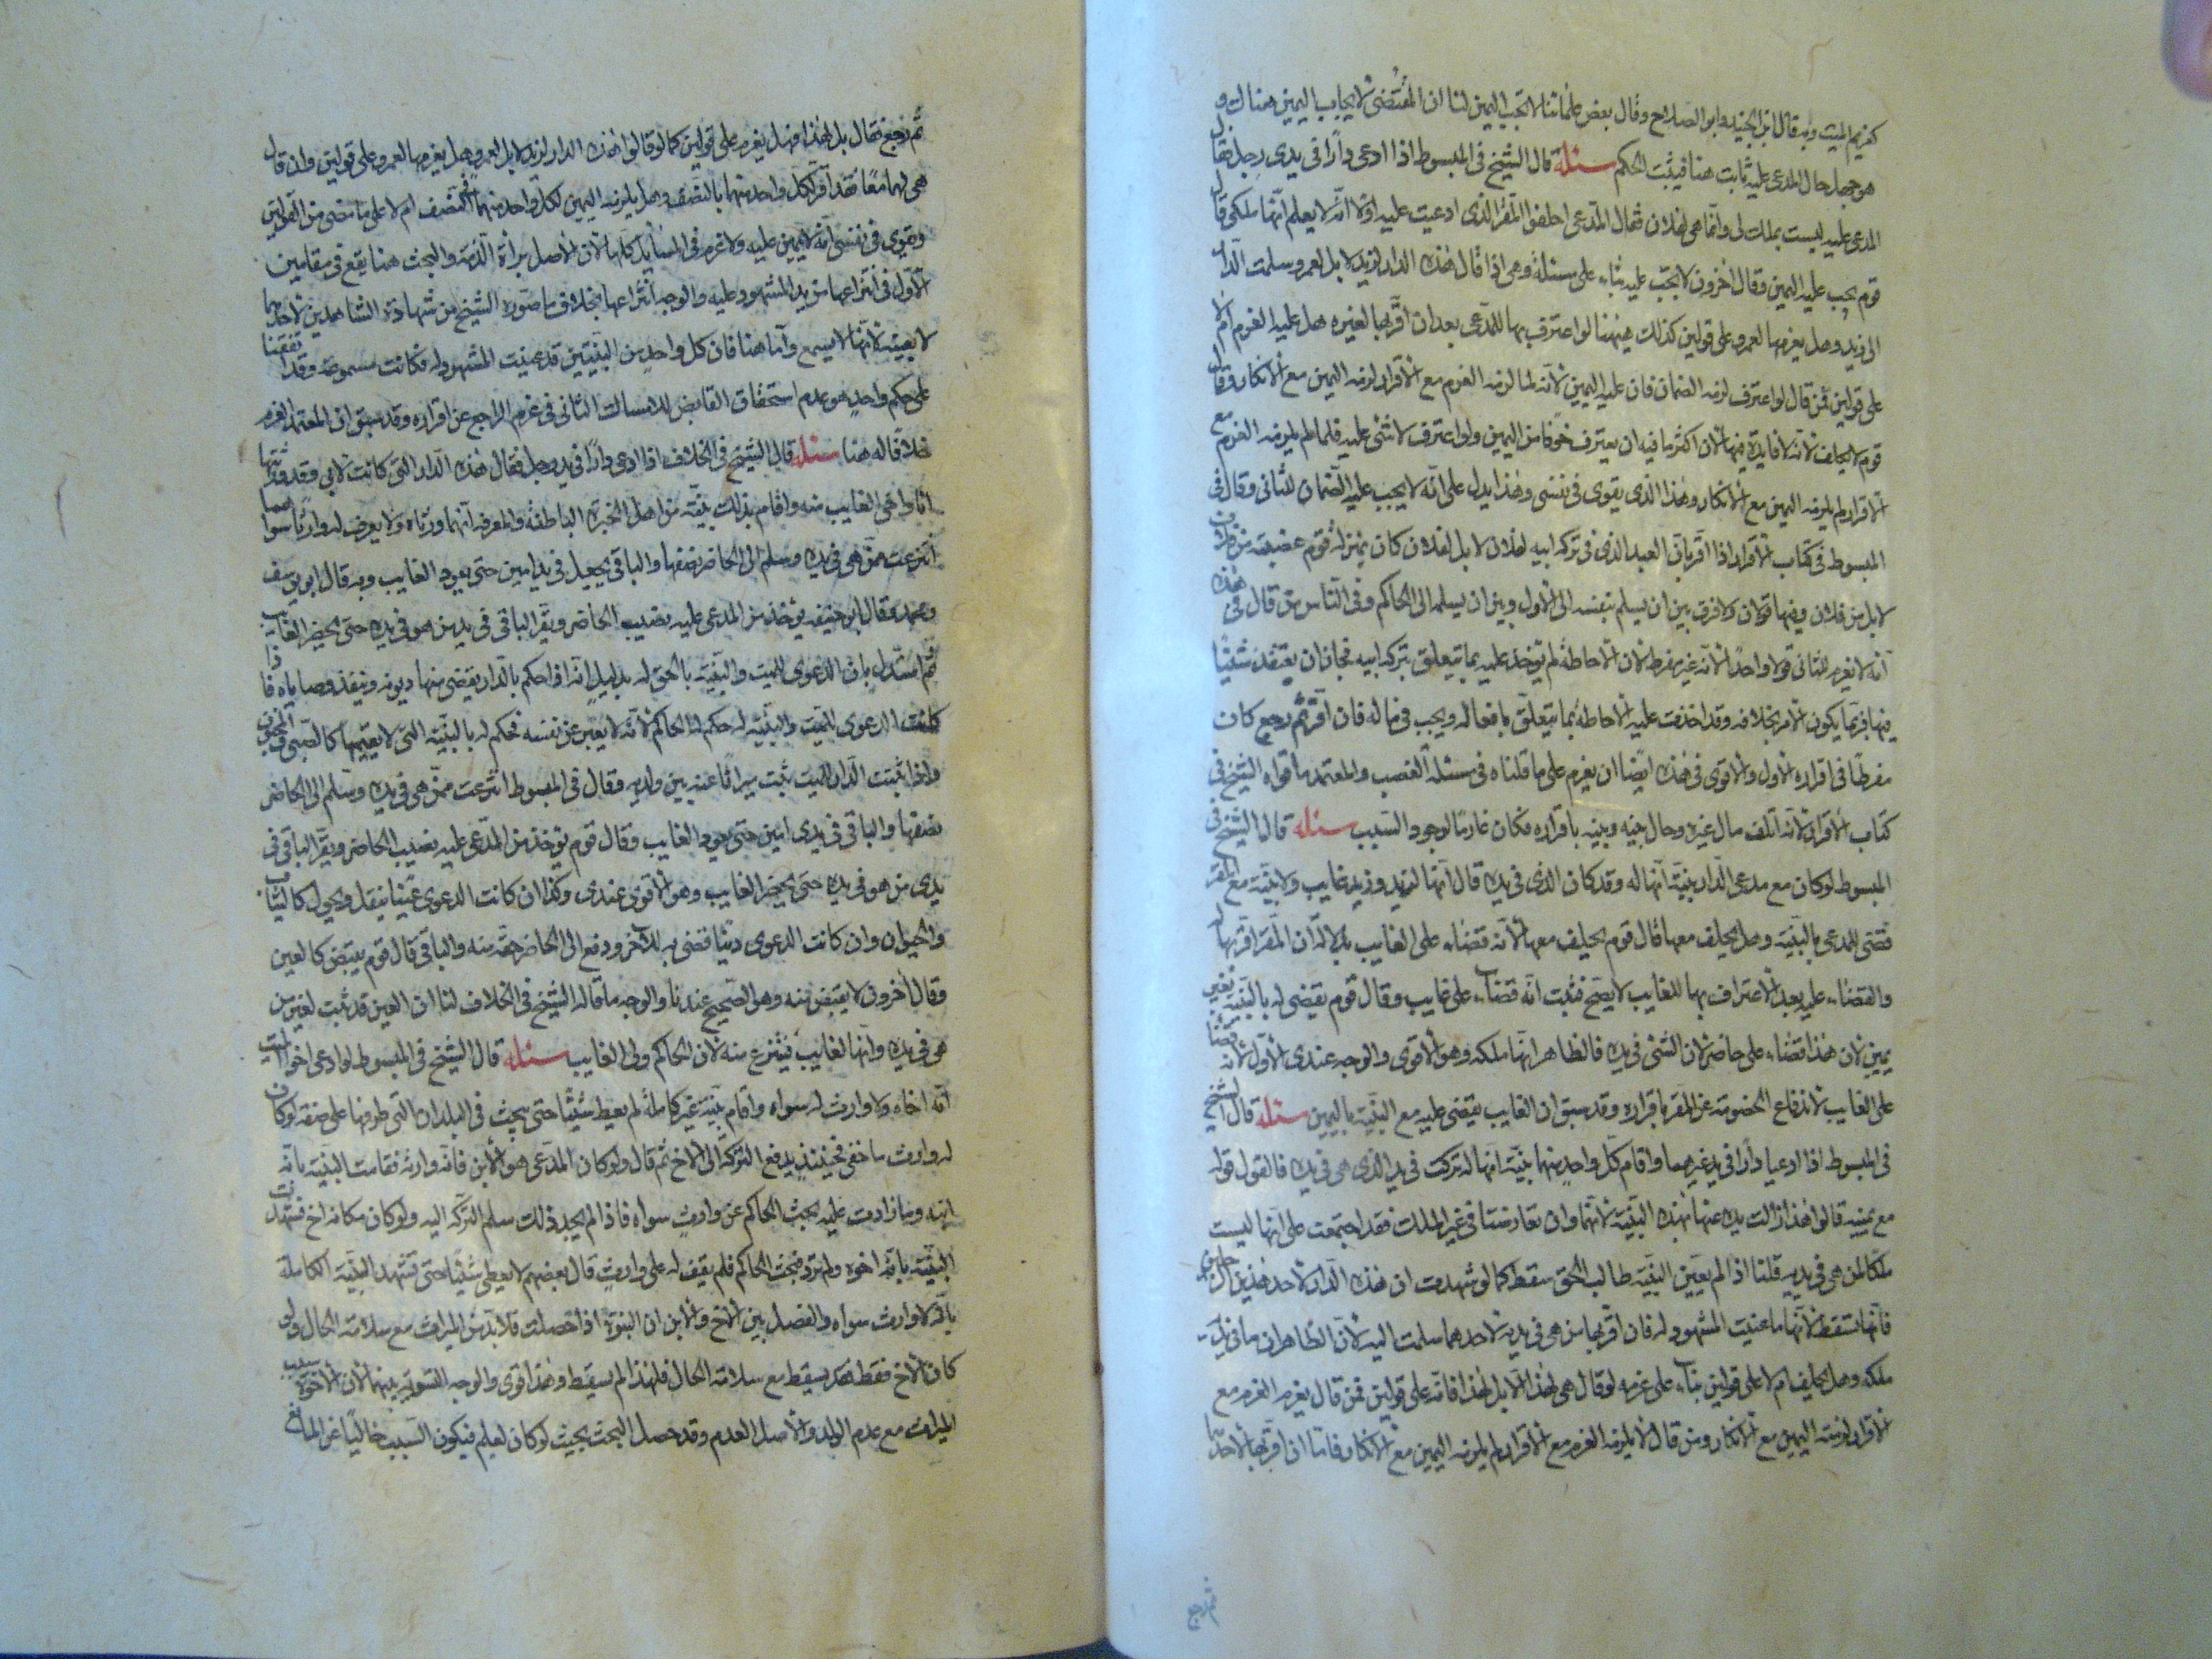 كغريم الميت وبه قال ابن الجنيد وابو الصلاح وقال بعض علمائنا لا تجب اليمين لنا ان المقتضى لايجاب اليمين هناك و
هو جهل حال المدعى عليه ثابت هنا فيثبت الحكم مسئلة قال الشيخ فى المبسوط اذا ادعى دارًا فى يدى رجل فقال
المدعى عليه ليست بملك لى وانما هى لفلان فقال المدعى احلفوا المقر الذى ادعيت عليه اولا انه لا يعلم انها ملكى قال
قوم يجب عليه اليمين وقال اخرون لا يجب عليه بناء على مسئلة وهى اذا قال هذه الدار لزيد لا بل لعمرو سلمت الدار
الى زيد وهل يغرمها لعمرو على قولين كذلك ههنا لو اعترف بها للمدعى بعد ان اقر بها لغيره هل عليه الغرم ام لا
على قولين فمن قال لو اعترف لزمه الضمان قال عليه اليمين لانه لما لزمه الغرم مع الاقرار لزمه اليمين مع الانكار وقال
قوم لا يحلف لانه لا فايدة فيها لان اكثر ما فيه ان يعترف خوفا من اليمين ولو اعترف لا شئ عليه فلما لم يلزمه الغرم مع
الاقرار لم يلزمه اليمين مع الانكار وهذا الذى يقوى فى نفسى وهذا يدل على انه لا يجب عليه الضمان للثانى وقال فى
المبسوط فى كتاب الاقرار اذا اقر بان العبد الذى فى تركة ابيه لفلان لا بل لفلان كان بمنزلة قوله غصبته من فلان
لا بل من فلان وفيها قولان ولا فرق بين ان يسلم بنفسه الى الاول وبين ان يسلمه الى الحاكم وفى الناس من قال فى هذه
انه لا يغرم للثانى قولا واحدًا لانه غير مفرط لان الاحاطة لم تؤخذ عليه بما يتعلق بتركة ابيه فجاز ان يعتقد شيئًا
فيها فربما يكون الامر بخلافه وقد اخذت عليه الاحاطة بما يتعلق بافعاله ويجب فى ماله فان اقر ثم رجع كان
مفرطًا فى اقراره الاول والاقوى فى هذه ايضًا ان يغرم على ما قلناه فى مسئلة الغصب والمعتمد ما قواه الشيخ فى
كتاب الاقرار لانه اتلف مال غيره وحال بينه وبينه باقراره فكان غارمًا لوجود السبب مسئلة قال الشيخ فى
المبسوط لو كان مع مدعى الدار بينة انها له وقد كان الذى فى يده قال انها لزيد وزيد غايب ولا بينة مع المقر
قضى للمدعى بالبينة وهل يحلف معها قال قوم يحلف معها لانه قضاء على الغايب بدلالة ان المقر اقر بها له
والقضاء عليه بعد الاعتراف بها للغايب لا يصح فثبت انه قضاء على غايب وقال قوم يقضى له بالبينة بغير
يمين لان هذا قضاء على حاضر لان الشئ فى يده فالظاهر انها ملكه وهو الاقوى والوجه عندى الاول لانه قضاء
على الغايب لاندفاع الخصومة عن المقر باقراره وقد سبق ان الغايب يقضى عليه مع البينة باليمين مسئلة قال الشيخ
فى المبسوط اذا ادعيا دارًا فى يد غيرهما واقام كل واحد منهما بينة انها له تركت فى يد الذى هى فى يده فالقول قوله
مع يمينه قالوا هذا زالت يده عنها بهذه البينة لانهما وان تعارضتا فى غير الملك فقد اجتمعت على انها ليست
ملكًا لمن هى فى يديه قلنا اذا لم يعين البينة طالب الحق سقط كما لو شهدت ان هذه الدار لاحد هذين الرجلين
فانها تسقط لانها ما عينت المشهود له فان اقر بها من هى فى يديه لاحدهما سلمت اليه لان الظاهر ان ما فى يده
ملكه وهل يحلف ام لا على قولين بناء على غرمه لو قال هى لهذا لا بل لهذا فانه على قولين فمن قال يغرم الغرم مع
الاقرار لزمته اليمين مع الانكار ومن قال لا يلزمه الغرم مع الاقرار لم يلزمه اليمين مع الانكار فاما ان اقر بها لاحدهما
ثم رجع
ثم رجع فقال بل لهذا فهل يغرم على قولين كما لو قالوا هذه الدار لزيد لا بل لعمرو هل يغرمها لعمرو على قولين وان قال
هى لهما معًا فقد اقر لكل واحد منهما بالنصف وهل يلزمه اليمين لكل واحد منهما فى النصف ام لا على ما مضى من القولين
ويقوى فى نفسى انه لا يمين عليه ولا غرم فى المسايل كلها لان الاصل براة الذمة والبحث هنا يقع فى مقامين
الاول فى انتزاعها من يد المشهود عليه والوجه انتزاعها بخلاف ما صوره الشيخ من شهادة الشاهدين لاحدهما
لا بعينه لانها لا تسمع واما هنا فان كل واحد من البينتين قد عينت المشهود له فكانت مسموعة وقد اتفقتا
على حكم واحد هو عدم استحقاق القابض للامساك الثانى فى غرم الراجع عن اقراره وقد سبق ان المعتمد الغرم
خلاف ما قاله هنا مسئلة قال الشيخ فى الخلاف اذا ادعى دارًا فى يد رجل فقال هذه الدار التى كانت لابى وقد ورثتها
انا واخى الغايب منه واقام بذلك بينة من اهل الخبرة الباطنة والمعرفة انهما ورثاه ولا يعرف له وارثًا سواهما
انتزعت ممن هى فى يده وسلم الى الحاضر نصفها والباقى يجعل فى يد امين حتى يعود الغايب وبه قال ابو يوسف
ومحمد وقال ابو حنيفة يؤخذ من المدعى عليه نصيب الحاضر ويقر الباقى فى يد من هو فى يده حتى يحضر الغايب
ثم استدل بان الدعوى للميت والبينة بالحق له بدليل انه اذا حكم بالدار يقضى منها ديونه وينفذ وصاياه فاذا
كانت الدعوى للميت والبينة له حكم له الحاكم لانه لا يعبر عن نفسه فحكم له بالبينة التى لا يقيمها كالصبى والمجنون
واذا ثبتت الدار للميت ثبت ميراثًا عنه بين ولديه وقال فى المبسوط انتزعت ممن هى فى يده وسلم الى الحاضر
نصفها والباقى فى يدى امين حتى يعود الغايب وقال قوم يؤخذ من المدعى عليه نصيب الحاضر ويقر الباقى فى
يدى من هو فى يده حتى يحضر الغايب وهو الاقوى عندى وكذا ان كانت الدعوى عينًا ينقل ويحول كالثياب
والحيوان وان كانت الدعوى دينًا قضى به للاخر ودفع الى الحاضر حقه منه والباقى قال قوم يقبض كالعين
وقال اخرون لا يقبض منه وهو الصحيح عندنا والوجه ما قاله الشيخ فى الخلاف لنا ان العين قد ثبت لغير من
هى فى يده وانها لغايب فينزع منه لان الحاكم ولى الغايب مسئلة قال الشيخ فى المبسوط لو ادعى اخوا الميت
انه اخاه ولا وارث له سواه واقام بينة غير كاملة لم يعط شيئًا حتى يبحث فى البلدان التى طوفها على صفة لو كان
له وارث ما خفى فحينئذ يدفع التركة الى الاخ ثم قال ولو كان المدعى هو الابن فانه وارثه فقامت البينة بانه
ابنه وما زادت عليه بحث الحاكم عن وارث سواه فاذا لم يجد ذلك سلم التركة اليه ولو كان مكانه اخ فشهدت
البينة بانه اخوه ولم تزد فبحث الحاكم فلم يقف له على وارث قال بعضهم لا يعطى شيئًا حتى تشهد البينة الكاملة
بانه لا وارث سواه والفصل بين الاخ والابن ان البنوة اذا حصلت فلا بد من الميراث مع سلامة الحال ولو
كان الاخ فقط فقد يسقط مع سلامة الحال فلهذا لم يسقط وهذا قوى والوجه التسوية بينهما لان الاخوة سبب
الميراث مع عدم الولد والاصل العدم وقد حصل البحث بحيث لو كان لعلم فيكون السبب خاليًا عن المانع